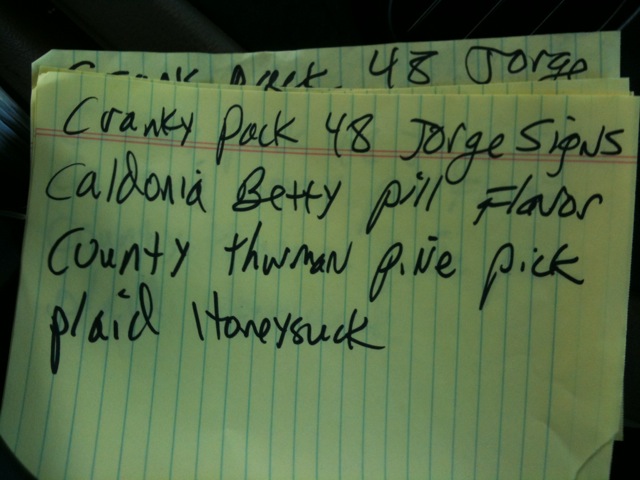 48 Jorge
Cranky Pack 48 Jorge Signs
Caldonia Betty pill Flavor
County thurman pine pick
plaid Honeysuck